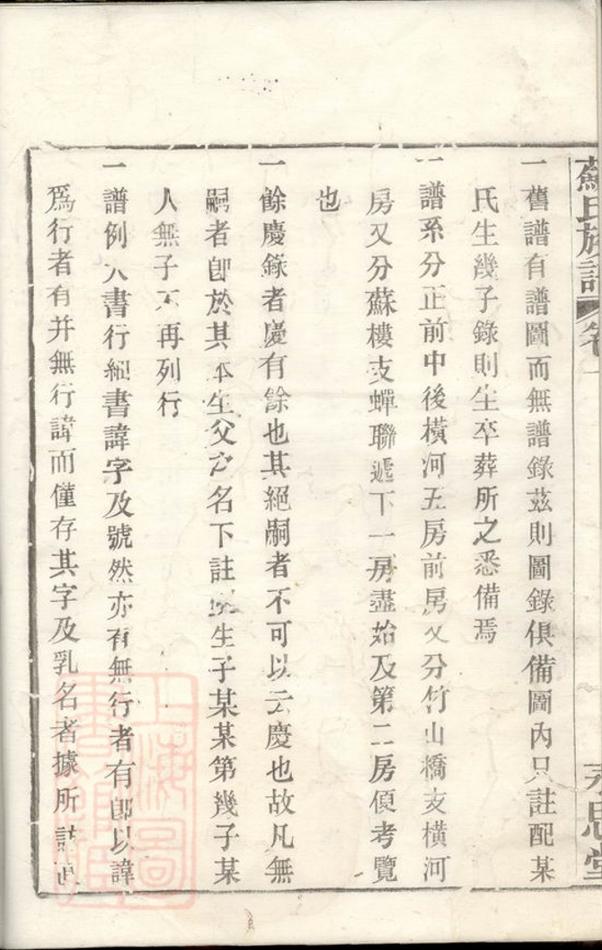 蘇氏族譜 卷一
一舊譜有譜圖而無譜錄茲則圖錄俱備圖內只註配某
氏生幾子錄則生卒葬所之悉備焉
一譜系分正前中後橫河五房前房又分竹山橋支橫河
房又分蘇樓支蟬聯遞下一房盡始及第二房便考覽
也
一餘慶錄者慶有餘也其絕嗣者不可以云慶也故凡無
嗣者卽於其本生父之名下註明生子某某第幾子某
人無子不再列行
一譜例大書行細書諱字及號然亦有無行者有卽以諱
爲行者有并無行諱而僅存其字及乳名者據所註
思堂
上海圖書館藏